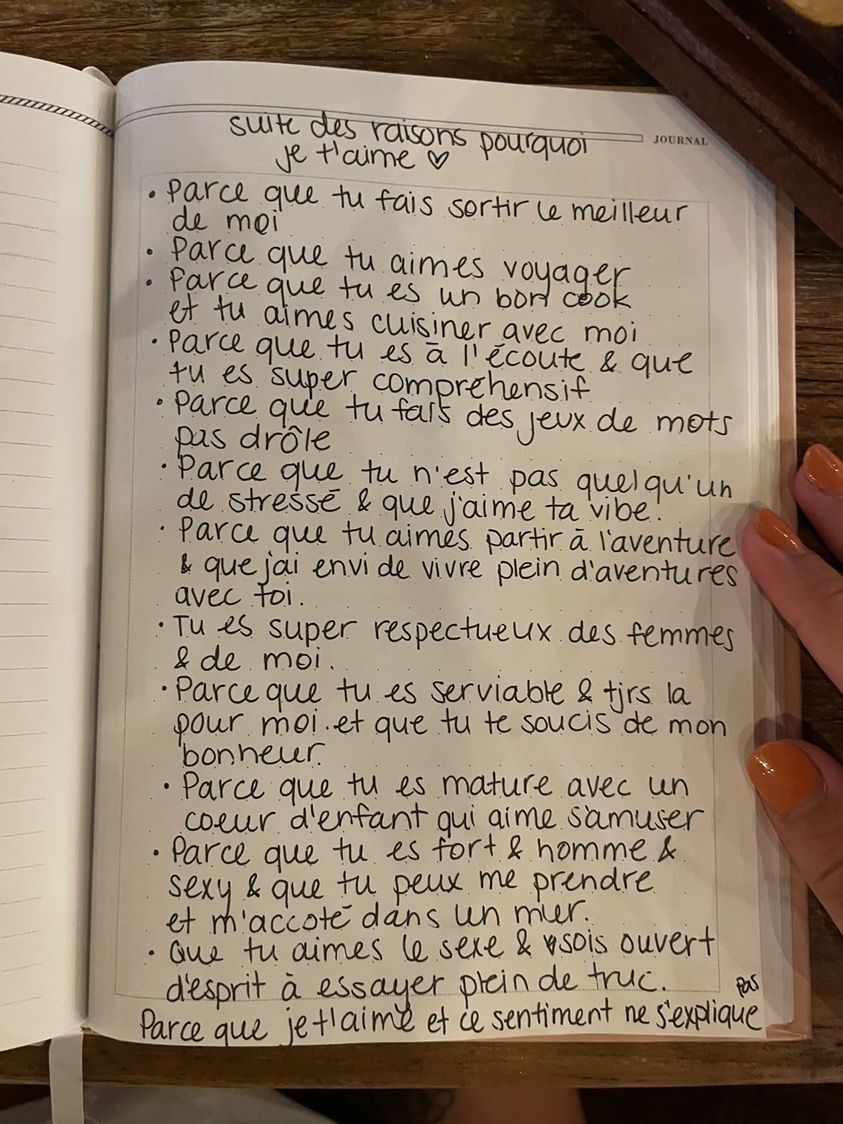 JOURNAL
suite des raisons pourquoi
je t'aime ♡
• Parce que tu fais sortir le meilleur
de moi
• Parce que tu aimes voyager
• Parce que tu es un bon cook
et tu aimes cuisiner avec moi
• Parce que tu es à l'écoute & que
tu es super compréhensif
• Parce que tu fais des jeux de mots
pas drôle
• Parce que tu n'est pas quelqu'un
de stressé & que j'aime ta vibe.
• Parce que tu aimes partir à l'aventure
& que j'ai envi de vivre plein d'aventures
avec toi.
• Tu es super respectueux des femmes
& de moi.
• Parce que tu es serviable & tjrs la
pour moi et que tu te soucis de mon
bonheur.
• Parce que tu es mature avec un
coeur d'enfant qui aime s'amuser
• Parce que tu es fort & homme &
sexy & que tu peux me prendre
et m'accoté dans un mur.
• Que tu aimes le sexe & sois ouvert
d'esprit à essayer plein de truc.
Parce que je t'aime et ce sentiment ne s'explique pas